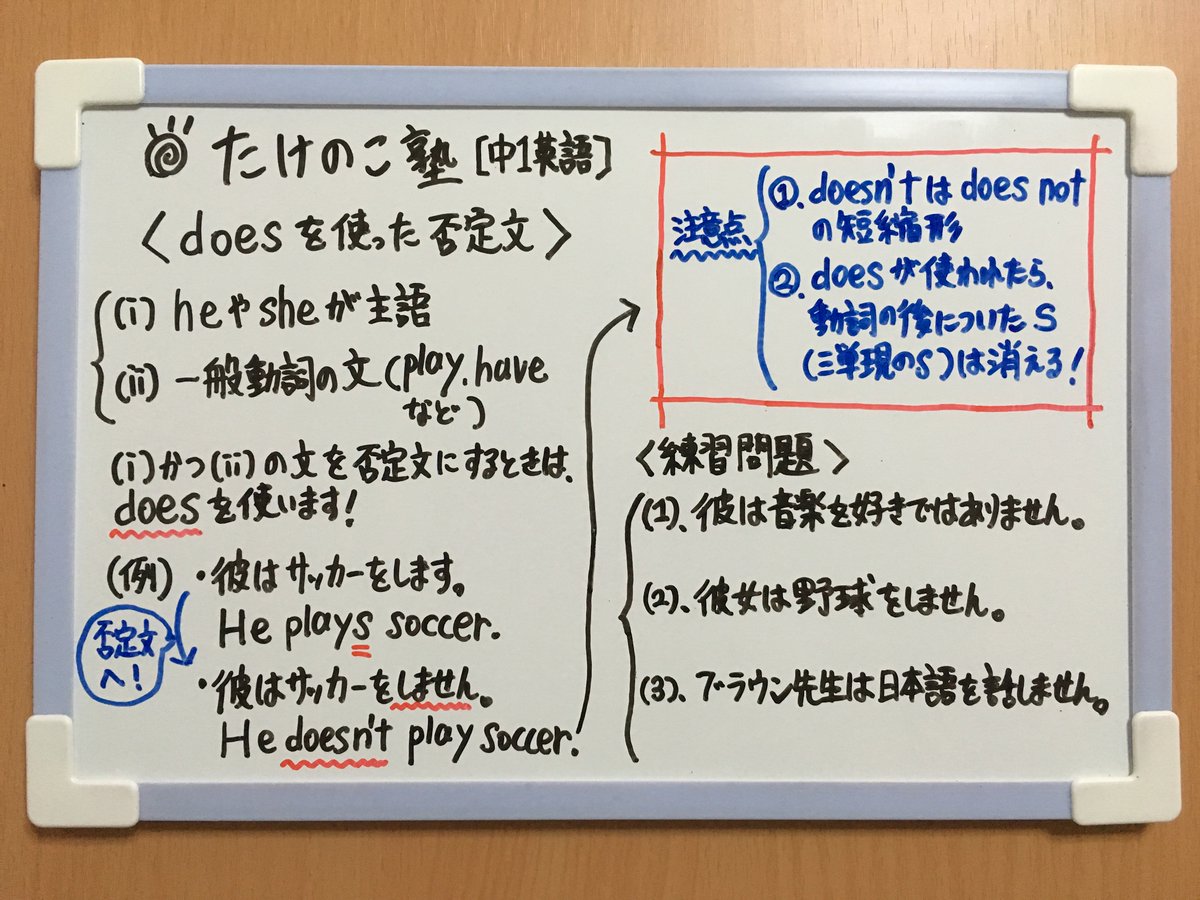 たけのこ塾 [中1英語]
〈doesを使った否定文〉
(i) heやsheが主語
(ii) 一般動詞の文(play, have
など)
(i)かつ(ii)の文を否定文にするときは、
doesを使います!
(例)・彼はサッカーをします。
He plays soccer.
否定文
へ!
・彼はサッカーをしません。
He doesn't play soccer.
注意点
①. doesn'tはdoes not
の短縮形
②. doesが使われたら、
動詞の後についたS
(三単現のS)は消える!
〈練習問題〉
(1)、彼は音楽を好きではありません。
(2)、彼女は野球をしません。
(3)、ブラウン先生は日本語を話しません。